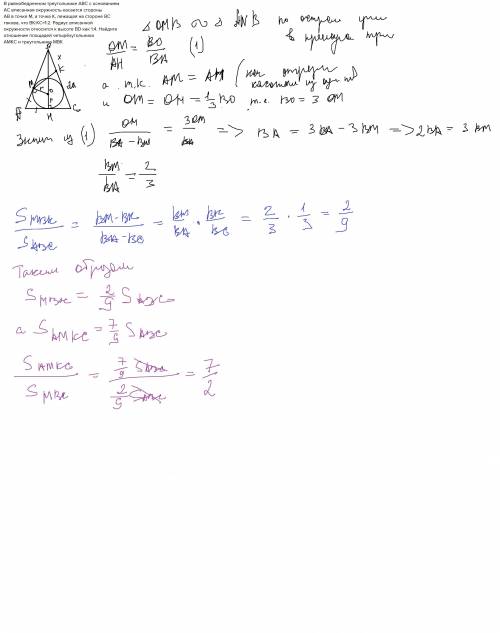 В равнобедренном треугольнике ABC с основанием
AC вписанная окружность касается стороны
AB в точке M, а точка K, лежащая на стороне BC
такова, что BK:KC=1:2. Радиус вписанной
окружности относится к высоте BD как 1:4. Найдите
отношение площадей четырёхугольника
AMKC и треугольника MBK
B
x
K
M
2x
O
A
H
C
△ OMB ∾ △ ANB по острым угли
OM/AH = BO/BA (1)
а т.к. AM = AH (как отрезки касательн из одн т)
и OM = OH = 1/3 BO, т.е. BO = 3 OM
Значит из (1) OM/(BA - BM) = 3OM/BA => BA = 3BA - 3BM => 2BA = 3BM
BM/BA = 2/3
S MBK / S ABC = BM·BK / BA·BC = BM/BA · BK/BC = 2/3 · 1/3 = 2/9
Таким образом
S MBK = 2/9 S ABC
а S AMKC = 7/9 S ABC
S AMKC / S MBK = 7/9 S ABC / 2/9 S ABC = 7/2